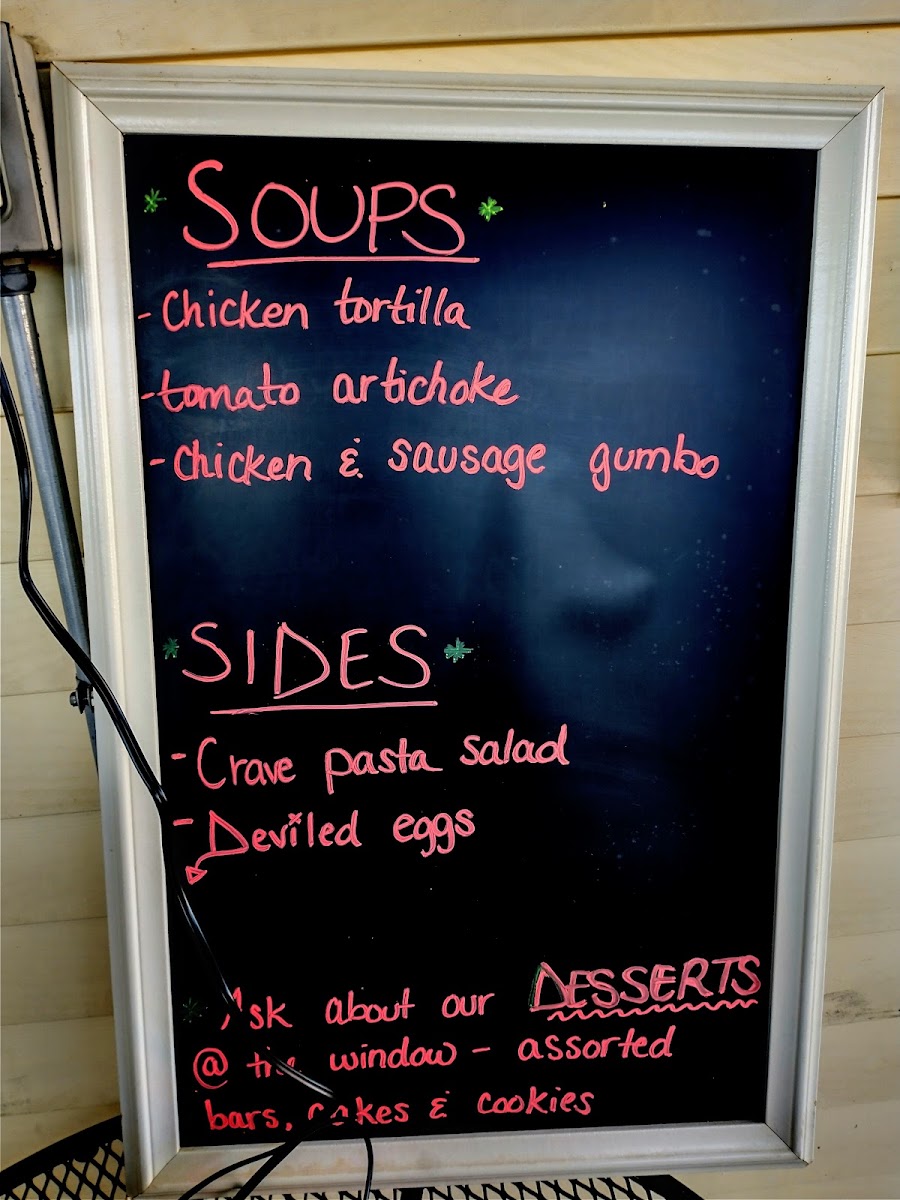 SOUPS
- Chicken tortilla
- tomato artichoke
- Chicken & sausage gumbo
SIDES
- Crave pasta salad
- Deviled eggs
Ask about our DESSERTS
@ the window - assorted
bars, cakes & cookies